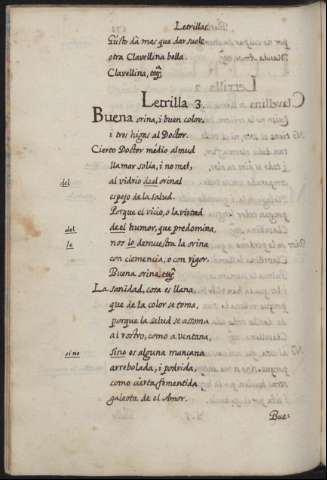 Letrillas.
Gusto dà mas que dar suele
otra Clavellina bella.
Clavellina, etc.
Letrilla 3.
Buena orina, i buen color,
i tres higas al Doctor.
Cierto Doctor medio almud
llamar solia, i no mal,
al vidrio del orinal
del
espejo de la salud.
Porque el vicio, o la virtud
del del humor, que predomina,
le nos lo demuestra la orina
con clemencia, o con rigor.
Buena orina, etc.
La sanidad, cosa es llana,
que de la color se toma,
porque la salud se assoma
al rostro, como a ventana,
sino sino es alguna mançana
arrebolada, i podrida,
como cierta fementida
galeota de el Amor.
Bue-